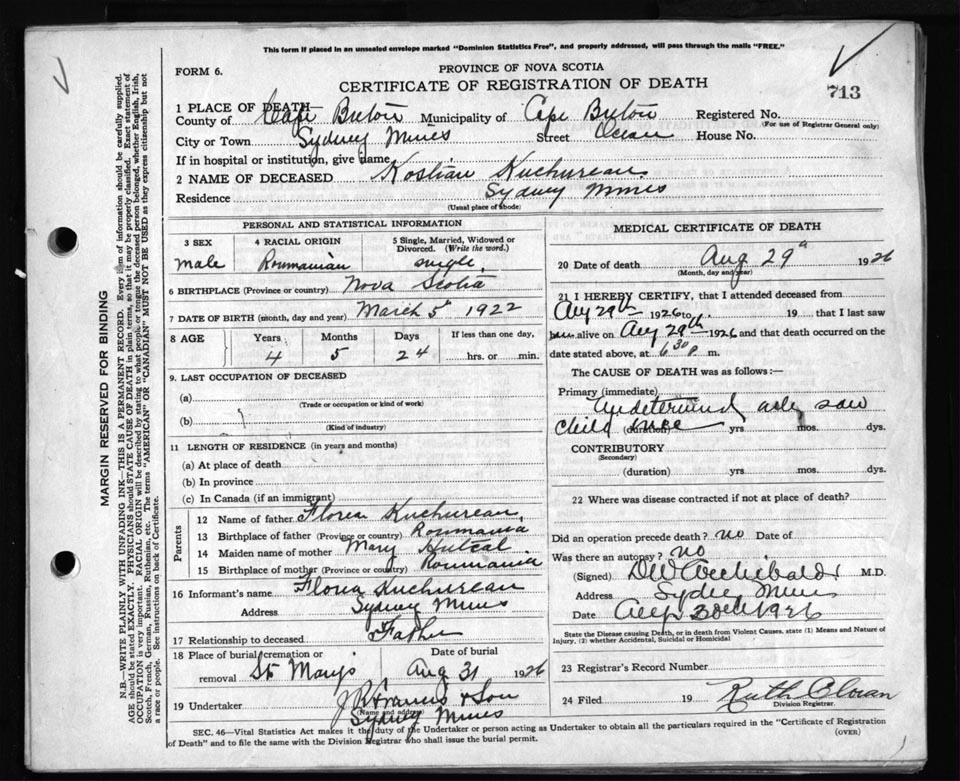 This form if placed in an unsealed envelope marked "Dominion Statistics Free", and properly addressed, will pass through the mails "FREE."
FORM 6.
PROVINCE OF NOVA SCOTIA
CERTIFICATE OF REGISTRATION OF DEATH
713
1 PLACE OF DEATH
County of Cape Breton Municipality of Cape Breton Registered No.
(For use of Registrar General only)
City or Town Sydney Mines Street Ocean House No.
If in hospital or institution, give name
2 NAME OF DECEASED Kostian Kuchurean
Residence Sydney Mines
(Usual place of abode)
PERSONAL AND STATISTICAL INFORMATION
3 SEX 4 RACIAL ORIGIN 5 Single, Married, Widowed or Divorced. (Write the word.)
male Roumanian single
6 BIRTHPLACE (Province or country) Nova Scotia
7 DATE OF BIRTH (month, day and year) March 5th 1922
8 AGE Years Months Days If less than one day,
4 5 24 hrs. or min.
9. LAST OCCUPATION OF DECEASED
(a)
(Trade or occupation or kind of work)
(b)
(Kind of industry)
11 LENGTH OF RESIDENCE (in years and months)
(a) At place of death
(b) In province
(c) In Canada (if an immigrant)
Parents
12 Name of father Florea Kuchurean
13 Birthplace of father (Province or country) Roumania
14 Maiden name of mother Mary
15 Birthplace of mother (Province or country) Roumania
16 Informant's name Florea Kuchurean
Address Sydney Mines
17 Relationship to deceased Father
18 Place of burial, cremation or removal St Mary's Date of burial Aug 31 1926
19 Undertaker J R Francis & Son
(Name and address)
Sydney Mines
MEDICAL CERTIFICATE OF DEATH
20 Date of death Aug 29 1926
(Month, day and year)
21 I HEREBY CERTIFY, that I attended deceased from
Aug 29th 1926 to 19 that I last saw
alive on Aug 29th 1926 and that death occurred on the
date stated above, at 6 30 p m.
The CAUSE OF DEATH was as follows:—
Primary (immediate)
Undetermined only saw
child once (duration) yrs mos. dys.
CONTRIBUTORY
(Secondary)
(duration) yrs mos. dys.
22 Where was disease contracted if not at place of death?
Did an operation precede death? no Date of
Was there an autopsy? no
(Signed) DW Archibald M.D.
Address Sydney Mines
Date Aug 30th 1926
State the Disease causing Death, or in death from Violent Causes, state (1) Means and Nature of Injury, (2) whether Accidental, Suicidal or Homicidal
23 Registrar's Record Number
24 Filed 19 Ruth
Division Registrar.
SEC. 46—Vital Statistics Act makes it the duty of the Undertaker or person acting as Undertaker to obtain all the particulars required in the "Certificate of Registration
of Death" and to file the same with the Division Registrar who shall issue the burial permit.
(OVER)
MARGIN RESERVED FOR BINDING
N.B.—WRITE PLAINLY WITH UNFADING INK—THIS IS A PERMANENT RECORD. Every item of information should be carefully supplied.
AGE should be stated EXACTLY. PHYSICIANS should STATE CAUSE OF DEATH in plain terms, so that it may be properly classified. Exact statement of
OCCUPATION is very important. RACIAL ORIGIN will be described by stating to what people or tongue the deceased person belonged, whether English, Irish,
Scotch, French, German, Russian, Ruthenian, etc. The terms "AMERICAN" or "CANADIAN" MUST NOT BE USED as they express citizenship but not
a race or people. See instructions on back of Certificate.